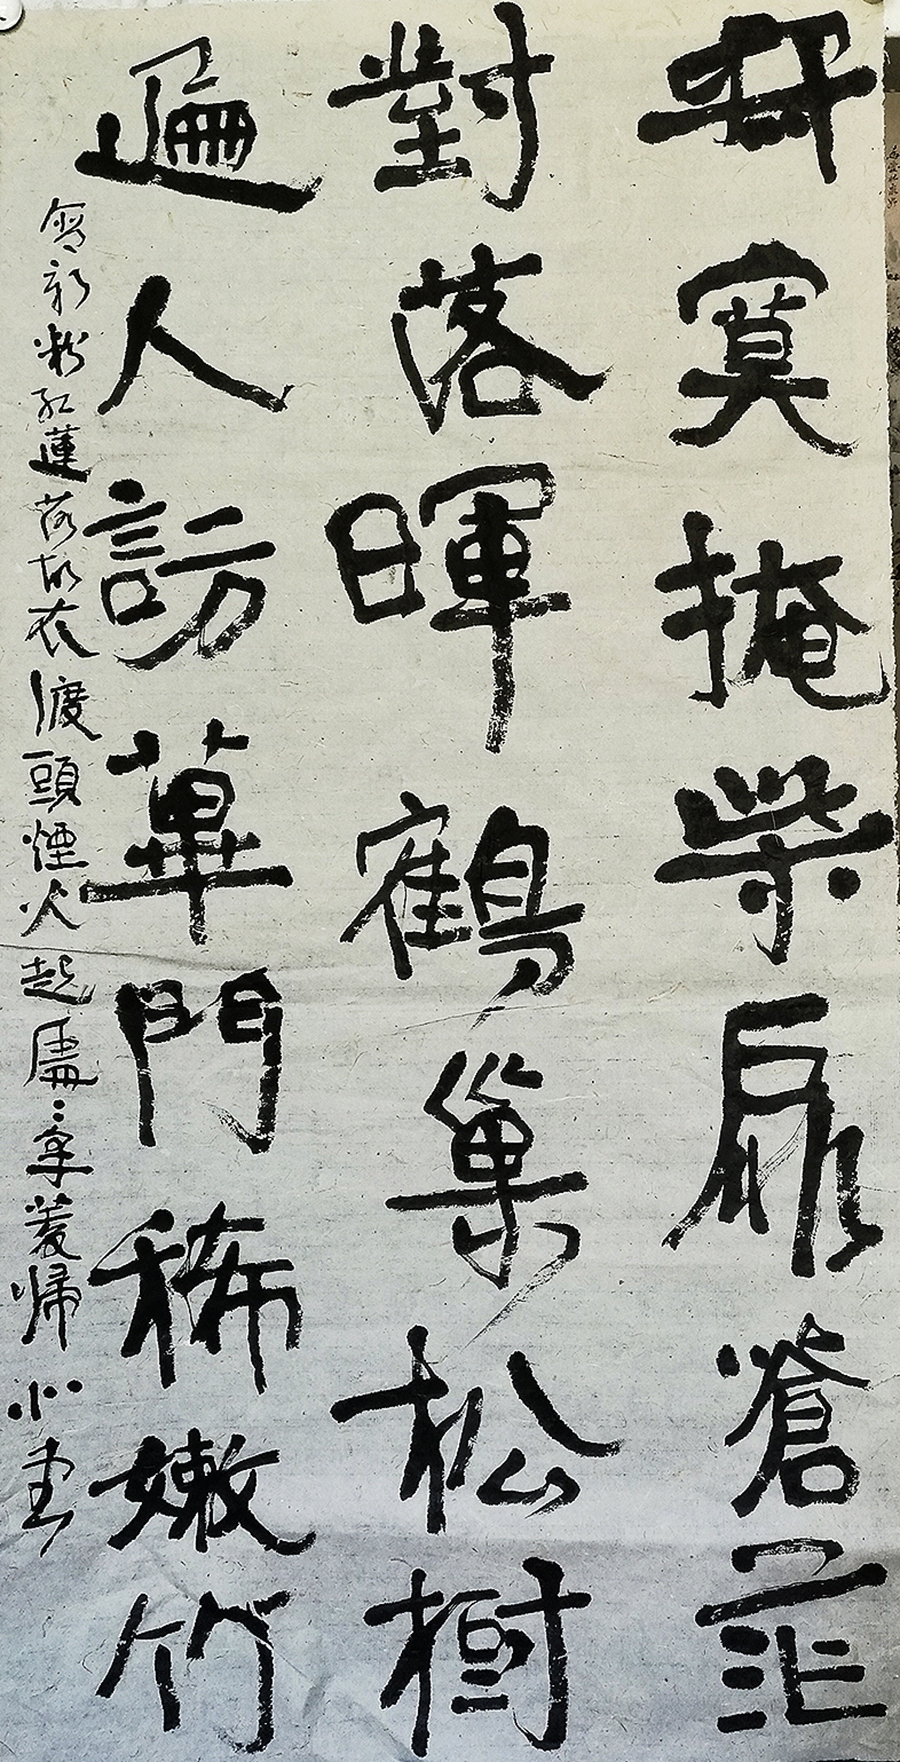 寂寞掩柴扉蒼茫
對落暉鶴巢松樹
遍人訪蓽門稀嫩竹
含新粉紅蓮落故衣渡頭煙火起處〻采菱歸 書